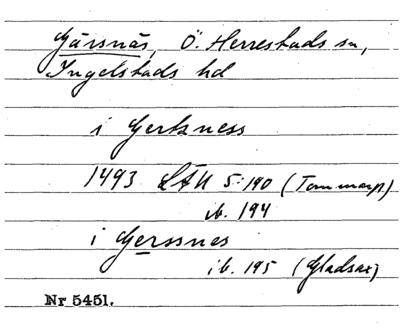 Gärsnäs, Ö. Herrestads sn,
Ingelstads hd
i Gertzness
1493 LÄU 5:190 (Tommarp)
ib. 194
i Gerssnes
ib. 195 (Gladsax)
Nr 5451.